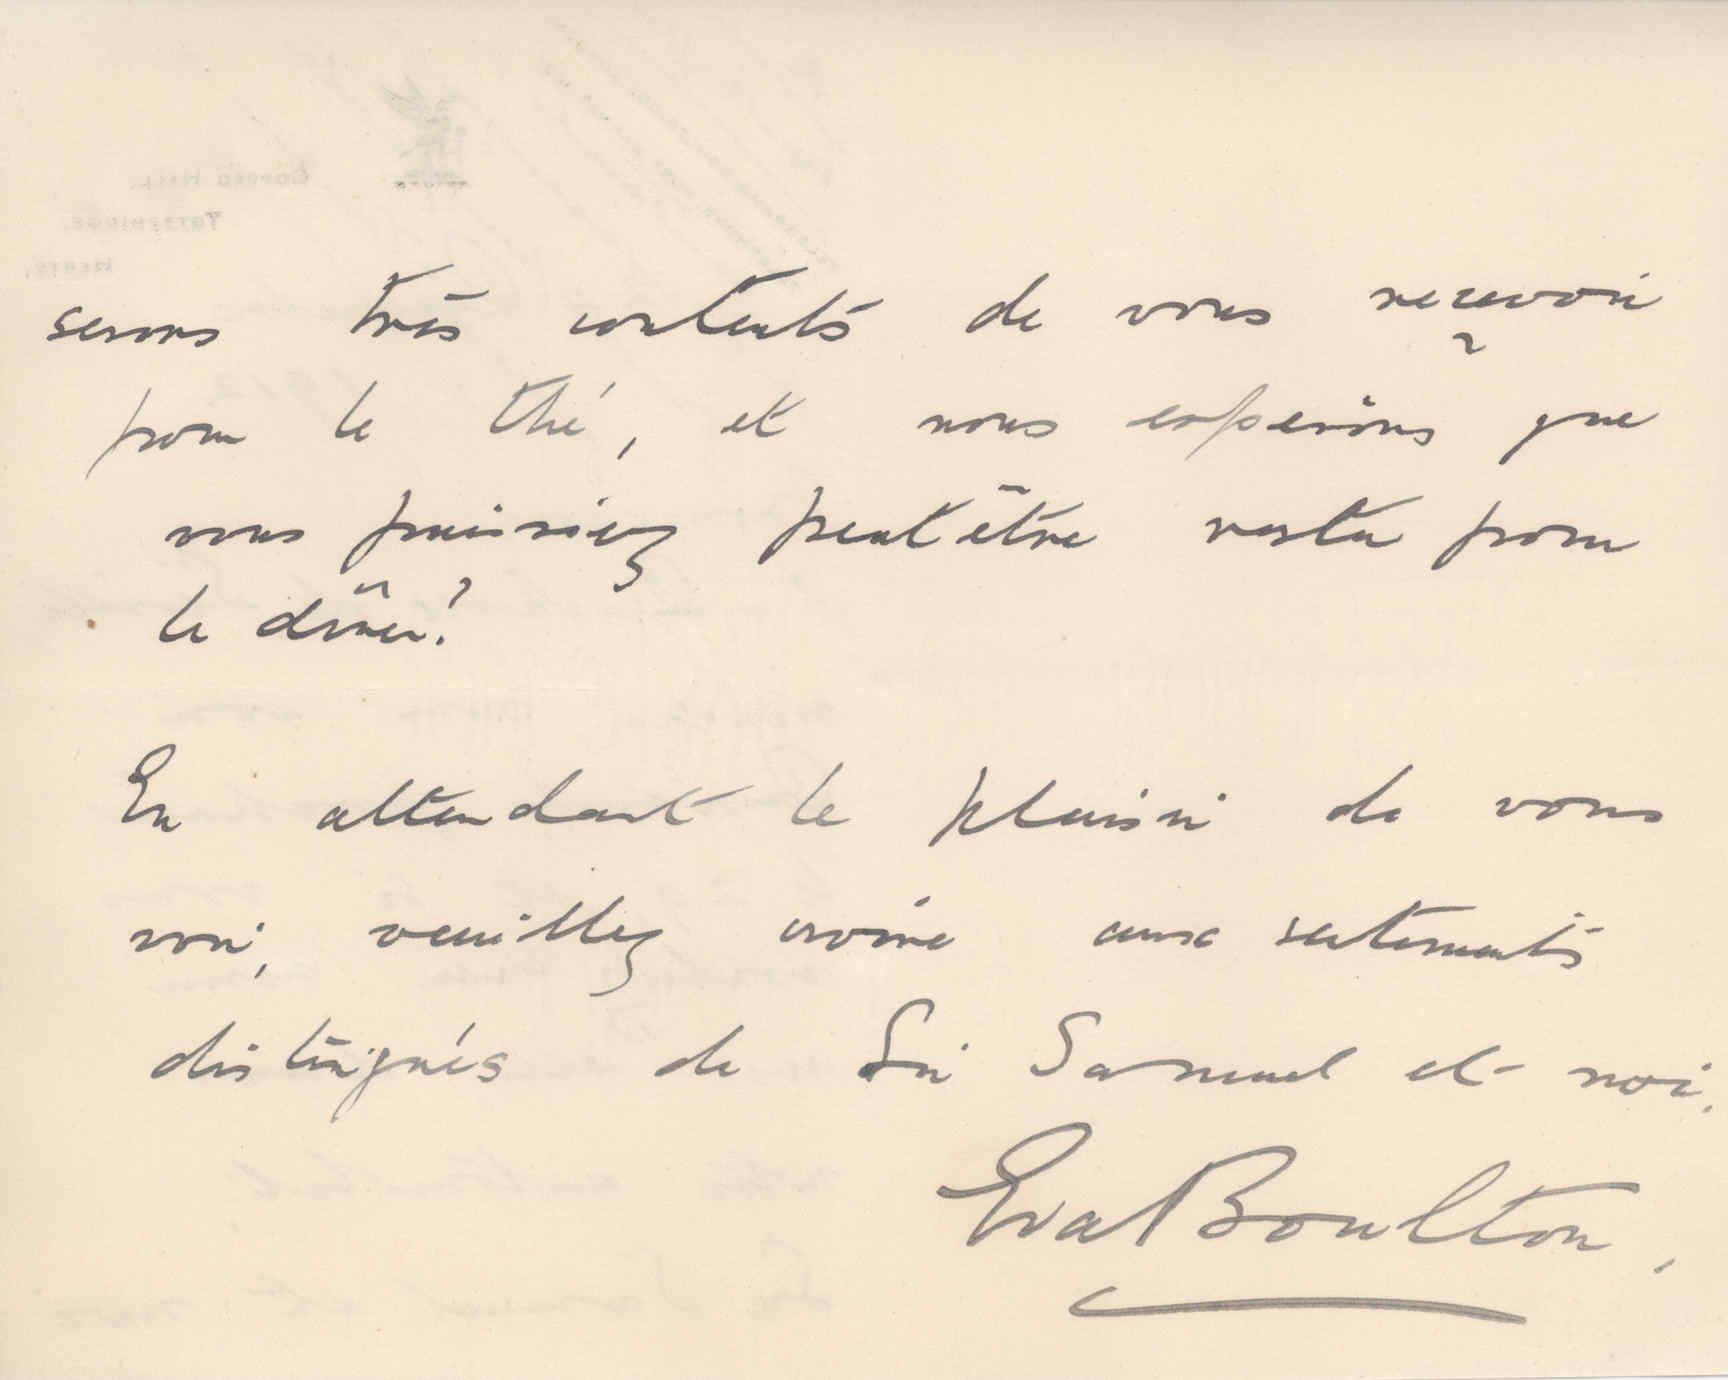 serons très contents de vous reçevoir
pour le thé, et nous espérons que
vous puissiez peut être rester pour
le dîner?
En attendant le plaisir de vous
voir, veuillez croire aux sentiments
distingués de Sir Samuel et moi.
Eva Boulton.
COPPED HALL.
TOTTERIDGE.
HERTS.